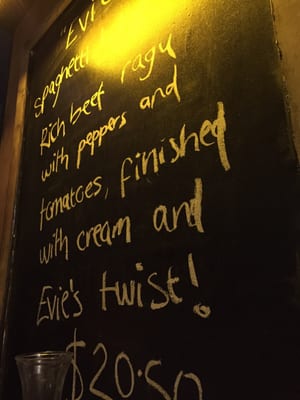 "Evie
Spaghetti
Rich beef ragu
with peppers and
tomatoes, finished
with cream and
Evie's twist!
$20.50